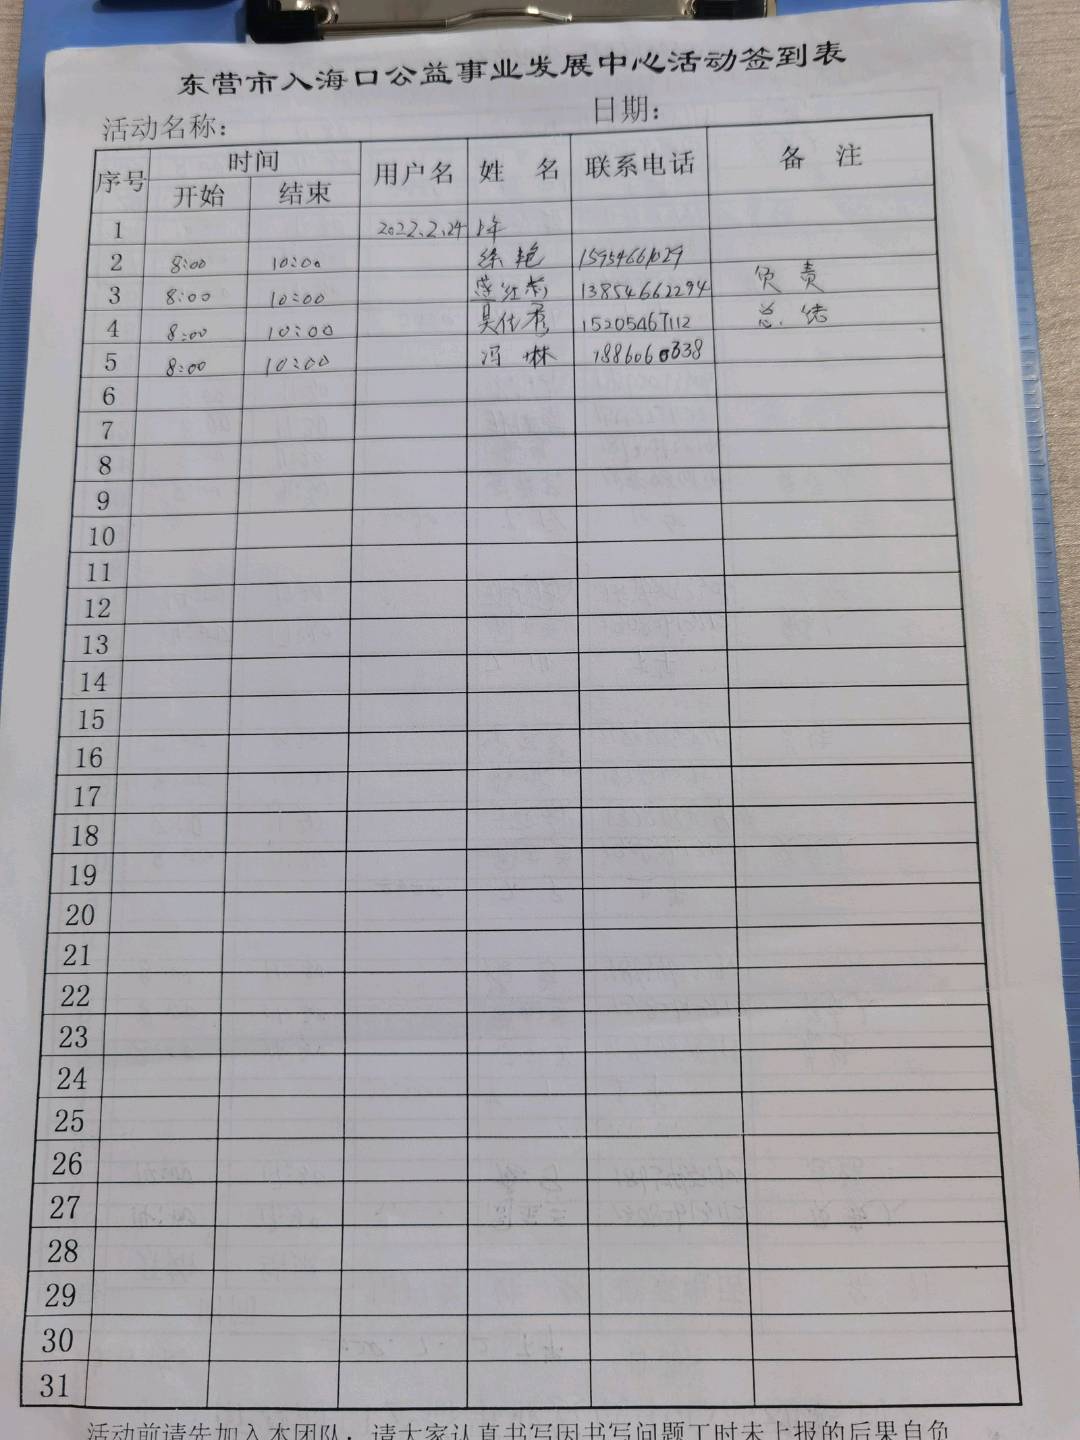 东营市入海口公益事业发展中心活动签到表
活动名称: 日期:
序号 时间 用户名 姓 名 联系电话 备 注
开始 结束
1 2022.2.24 上午
2 8:00 10:00 徐艳 15954661029
3 8:00 10:00 13854662294 负责
4 8:00 10:00 吴佳秀 15205467112 总结
5 8:00 10:00 冯琳
6
7
8
9
10
11
12
13
14
15
16
17
18
19
20
21
22
23
24
25
26
27
28
29
30
31
活动前请先加入本团队, 请大家认真书写因书写问题工时未上报的后果自负